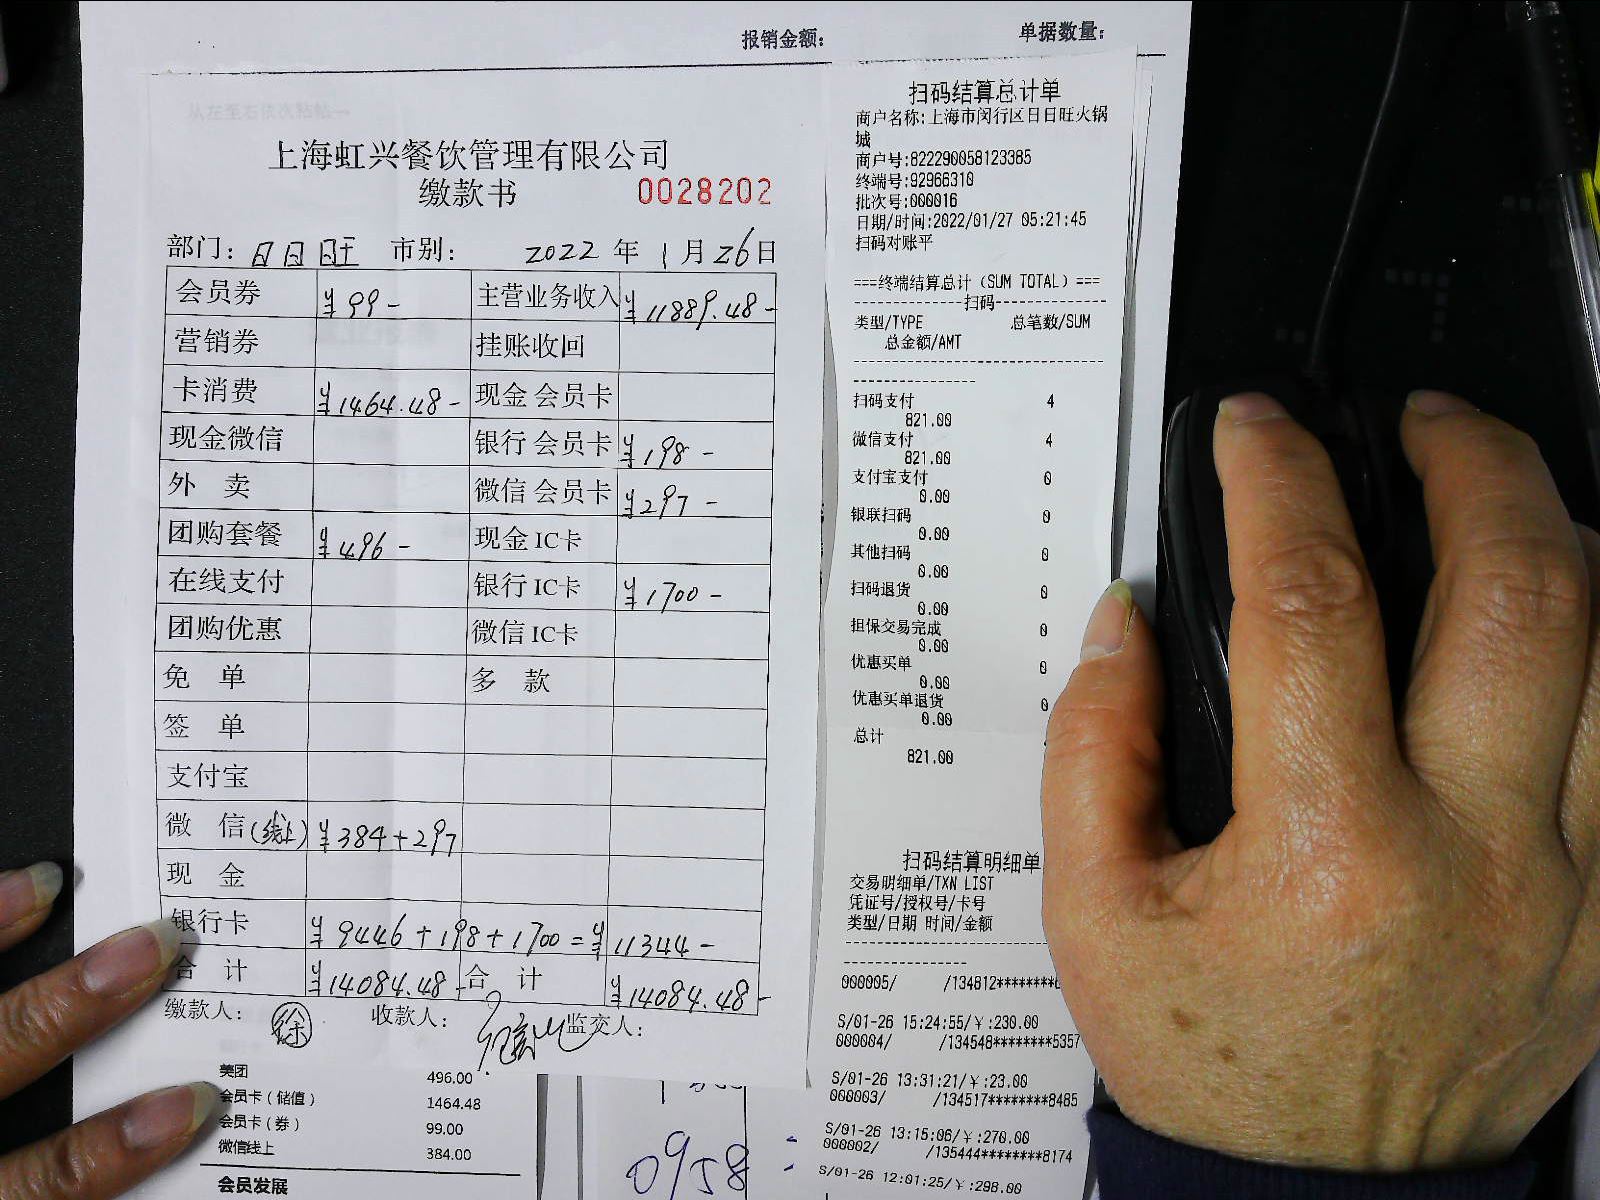 报销金额:
单据数量:
从左至右依次粘帖→
上海虹兴餐饮管理有限公司
缴款书
0028202
部门: 日日旺 市别: 2022 年 1 月 26 日
会员券 ¥99- 主营业务收入 ¥11889.48-
营销券 挂账收回
卡消费 ¥1464.48- 现金会员卡
现金微信 银行会员卡 ¥198-
外 卖 微信会员卡 ¥297-
团购套餐 ¥496- 现金IC卡
在线支付 银行IC卡 ¥1700-
团购优惠 微信IC卡
免 单 多 款
签 单
支付宝
微 信(线上) ¥384+297
现 金
银行卡 ¥9446+198+1700=¥11344-
合 计 ¥14084.48- 合 计 ¥14084.48-
缴款人: 徐 收款人: 监交人:
美团 496.00
会员卡(储值) 1464.48
会员卡(券) 99.00
微信线上 384.00
会员发展
0958
扫码结算总计单
商户名称:上海市闵行区日日旺火锅
城
商户号:822290058123385
终端号:92966310
批次号:000016
日期/时间:2022/01/27 05:21:45
扫码对账平
===终端结算总计(SUM TOTAL)===
---------------扫码---------------
类型/TYPE 总笔数/SUM
总金额/AMT
扫码支付 4
821.00
微信支付 4
821.00
支付宝支付 0
0.00
银联扫码 0
0.00
其他扫码 0
0.00
扫码退货 0
0.00
担保交易完成 0
0.00
优惠买单 0
0.00
优惠买单退货 0
0.00
总计
821.00
扫码结算明细单
交易明细单/TXN LIST
凭证号/授权号/卡号
类型/日期 时间/金额
000005/ /134812********
S/01-26 15:24:55/¥:230.00
000004/ /134548********5357
S/01-26 13:31:21/¥:23.00
000003/ /134517********8485
S/01-26 13:15:06/¥:270.00
000002/ /135444********8174
S/01-26 12:01:25/¥:298.00